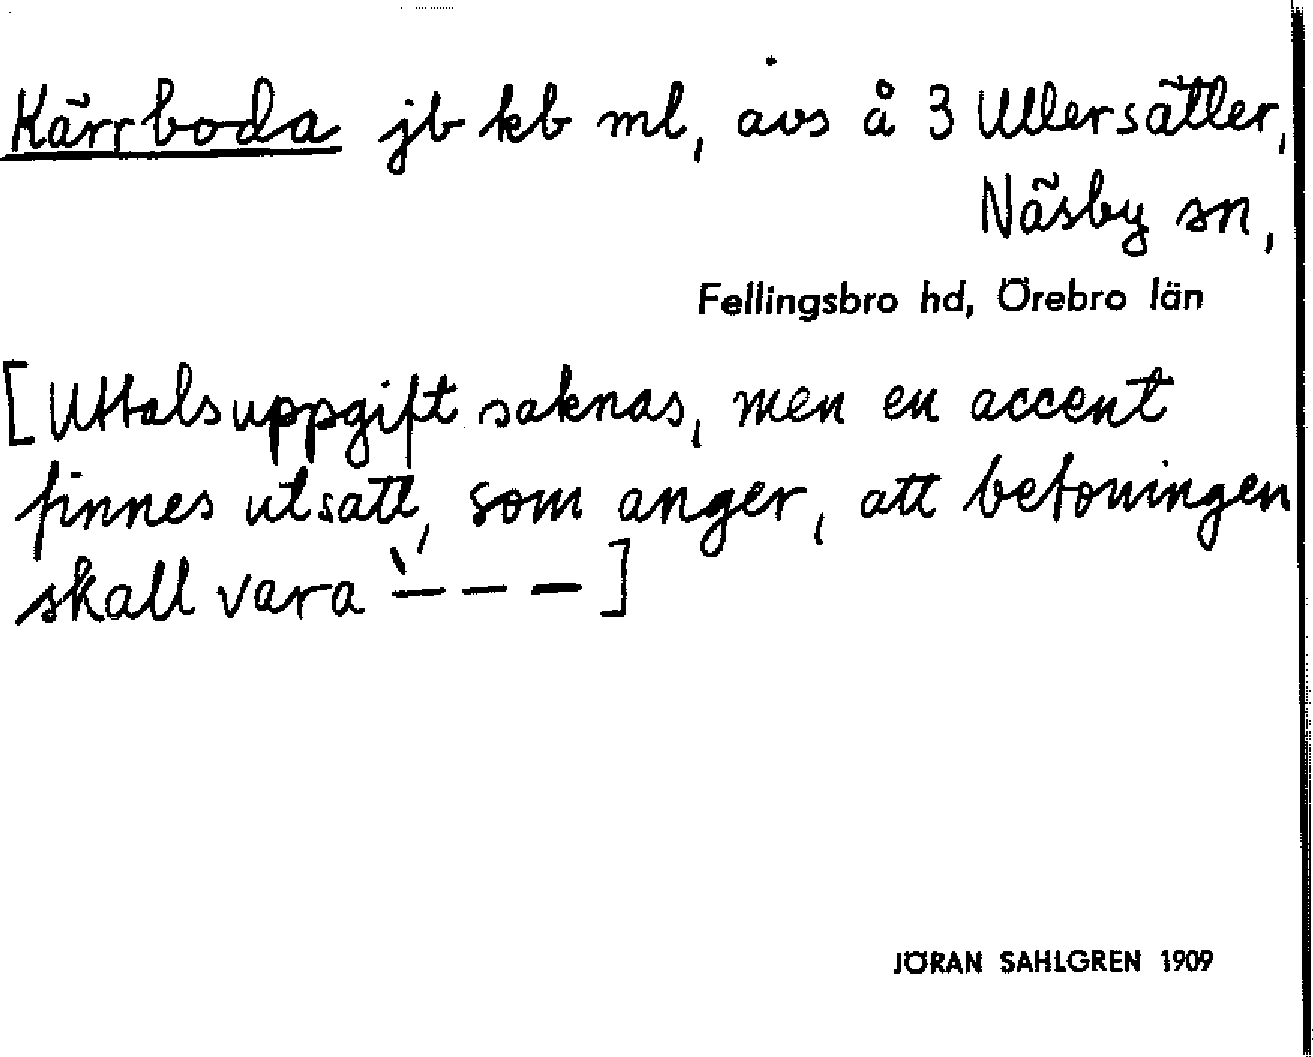 Kärrboda jb kb ml, avs å 3 Ullersätter,
Näsby sn,
Fellingsbro hd, Örebro län
[Uttalsuppgift saknas, men en accent
finnes utsatt, som anger, att betoningen
skall vara `— — —]
JÖRAN SAHLGREN 1909